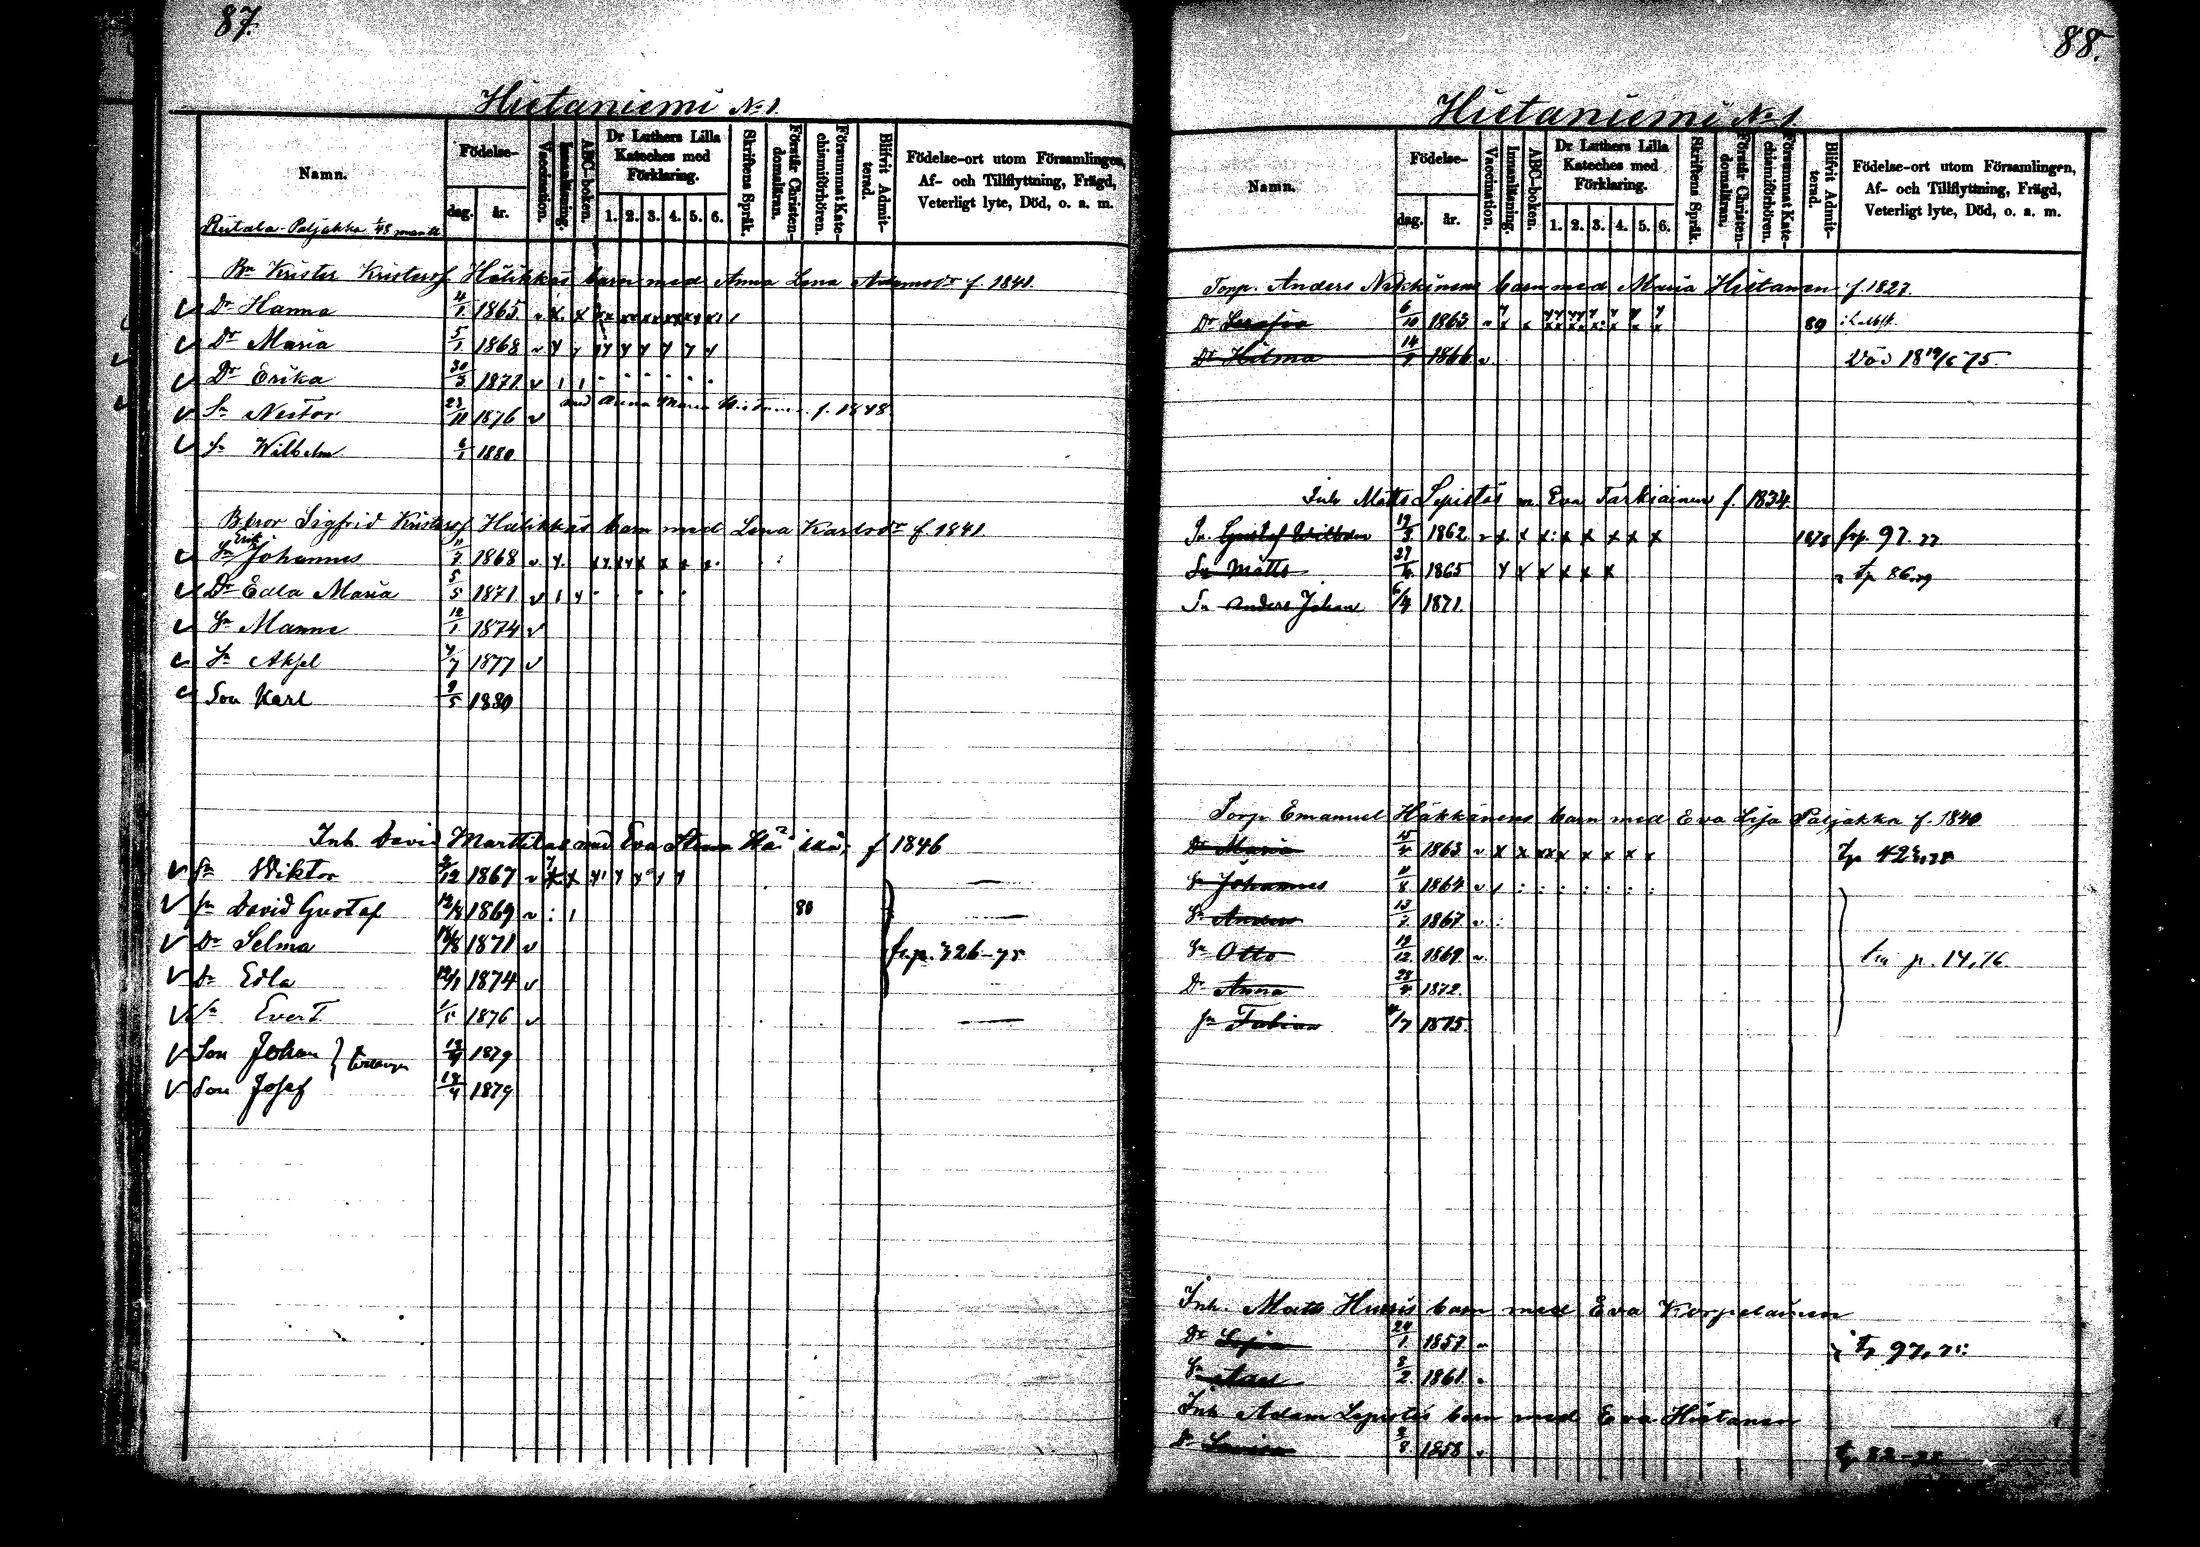 87.
Hietaniemi No 1.
Namn.
Födelse-
dag.
år.
Vaccination.
Innanläsning.
ABC-boken.
Dr Luthers Lilla Kateches med Förklaring.
1. 2. 3. 4. 5. 6.
Skriftens Språk.
Förstår Christen-domsläran.
Försummat Kate-chismiförhören.
Blifvit Admit-terad.
Födelse-ort utom Församlingen,
Af- och Tillflyttning, Frägd,
Veterligt lyte, Död, o. a. m.
Riitala-Paljakka 1/48 mantl
Bn Krister Kristersf Hälikkäs barn med Anna Lena Adamsdr f. 1841.
Dr Hanna 4/1 1865
Dr Maria 5/1 1868
Dr Erika 30/3 1872
med Anna Maria f. 1848
Sn Nestor 23/11 1876
Sn Wilhelm 6/1 1880
Sigfrid Kristersf Hälikkäs barn med Lena Karlsdr f 1841.
Sn Erik Johannes 11/7 1868
Dr Edla Maria 5/5 1871
Sn Manne 12/1 1874
Sn Axel 4/7 1877
Son Karl 9/5 1880
Inh. David Marttilas med Eva f 1846
Sn Wiktor 2/12 1867
Sn David Gustaf 12/8 1869 80
Dr Selma 1871
Dr Edla 1874
fr.p. 326-75
Sn Evert 1/5 1876
Son Johan 18/4 1879
Son Josef 18/4 1879
88.
Hietaniemi No 1
Namn.
Födelse-
dag.
år.
Vaccination.
Innanläsning.
ABC-boken.
Dr Luthers Lilla Kateches med Förklaring.
1. 2. 3. 4. 5. 6.
Skriftens Språk.
Förstår Christen-domsläran.
Försummat Kate-chismiförhören.
Blifvit Admit-terad.
Födelse-ort utom Församlingen,
Af- och Tillflyttning, Frägd,
Veterligt lyte, Död, o. a. m.
Torp. Anders Nikkinens barn med Maria Hietanen f. 1827.
Dr Serafia 6/10 1863 80
Dr Hilma 14/9 1866 Död 18 19/5 75.
Inh Matts Lepistös m Eva Tarkiainen f. 1834.
Sn Gustaf Wilhelm 1862 1878 frp. 97. 77
Sn Matts 1865 tp 86.79
Sn Anders Johan 1871.
Torp Emanuel Häkkänens barn med Eva Lisa Paljakka f. 1840
Dr Maria 15/4 1863 tp 423,78
Sn Johannes 11/8 1864
Sn Anders 13/7 1867
Sn Otto 12/12 1869
Dr Anna 28/4 1872.
p. 14,76.
Sn Fabian 1875.
Inh. Matts Hurris barn med Eva Korpelainen
Dr Sofia 24/1 1857
tp 97,75
Sn 2/2 1861
Inh Adam Lepistös barn med Eva Hietanen
Dr 2/8 1858